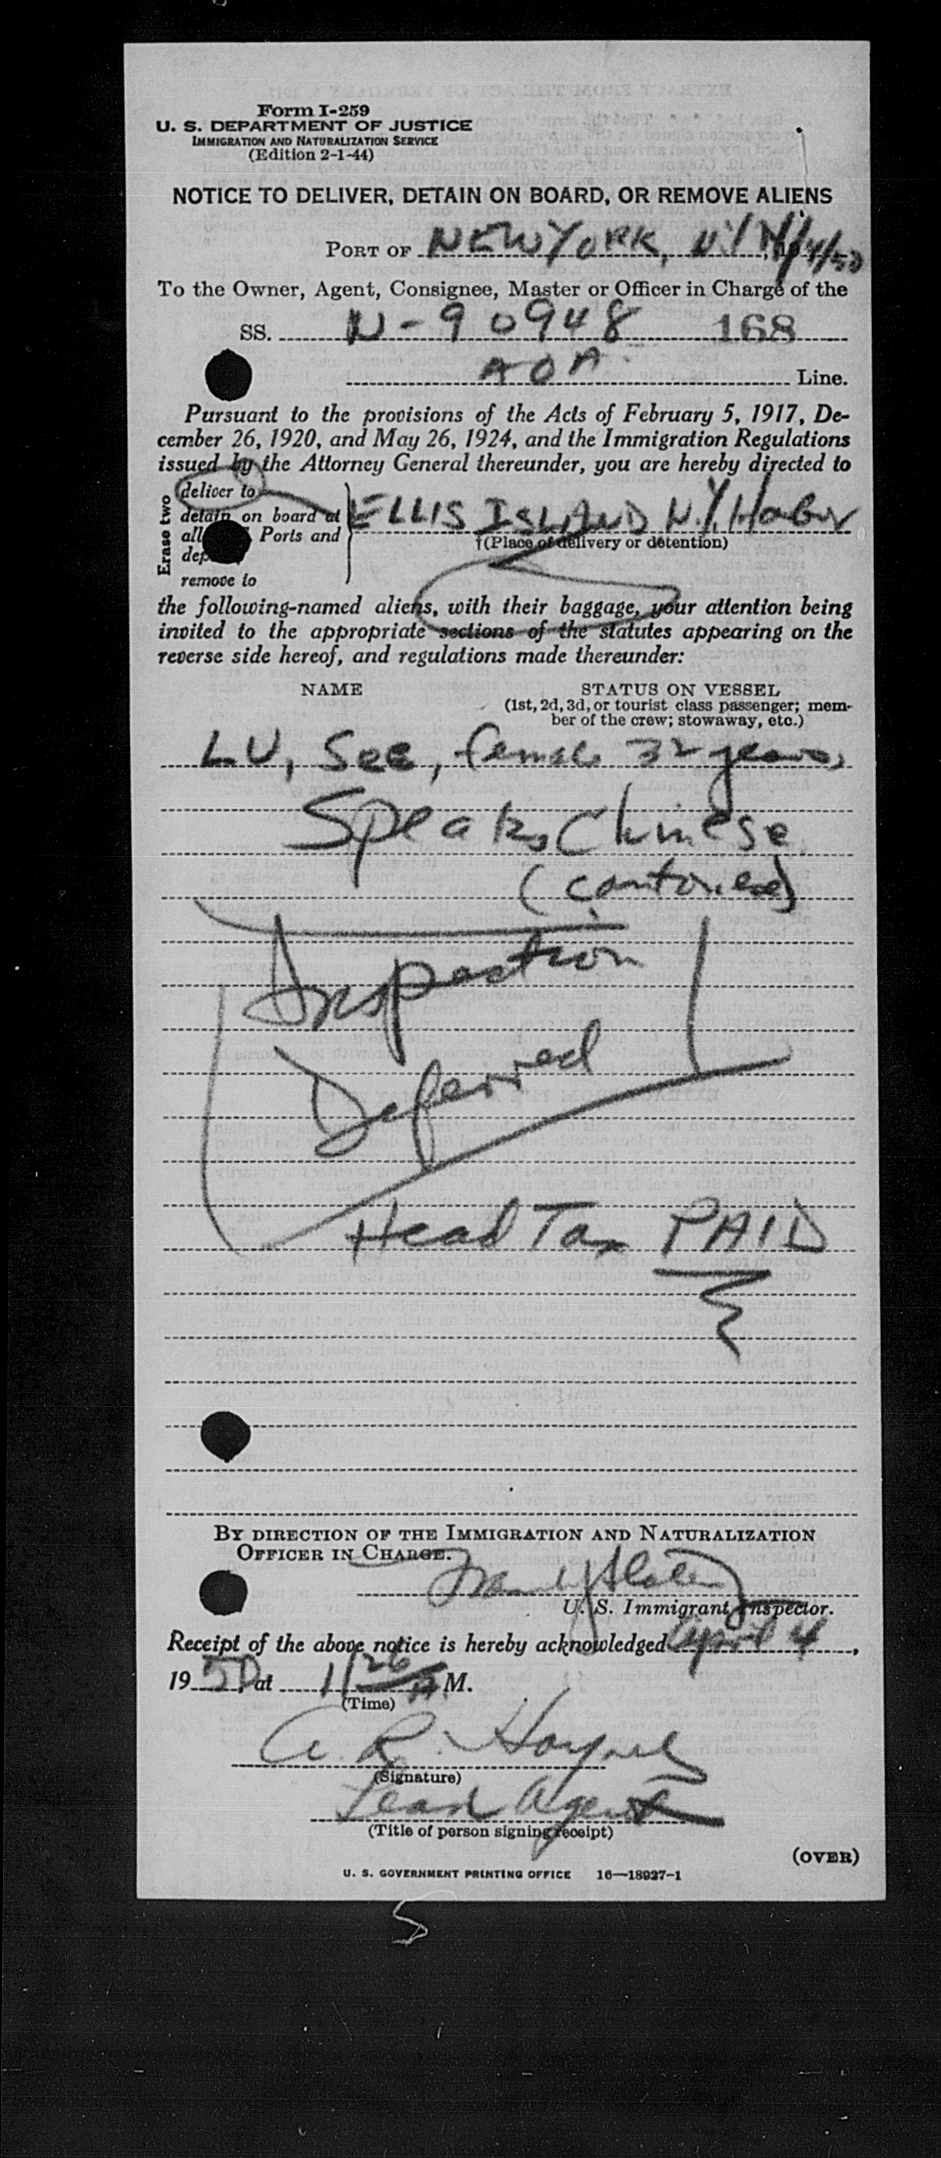 Form I-259
U. S. DEPARTMENT OF JUSTICE
IMMIGRATION AND NATURALIZATION SERVICE
(Edition 2-1-44)
NOTICE TO DELIVER, DETAIN ON BOARD, OR REMOVE ALIENS
PORT OF NEW YORK, N.Y. 4/4/50
To the Owner, Agent, Consignee, Master or Officer in Charge of the
SS. N-90948 168
AOA Line.
Pursuant to the provisions of the Acts of February 5, 1917, De-
cember 26, 1920, and May 26, 1924, and the Immigration Regulations
issued by the Attorney General thereunder, you are hereby directed to
Erase two
deliver to
detain on board at
all Ports and
remove to
ELLIS ISLAND N.Y. Habor
†(Place of delivery or detention)
the following-named aliens, with their baggage, your attention being
invited to the appropriate sections of the statutes appearing on the
reverse side hereof, and regulations made thereunder:
NAME STATUS ON VESSEL
(1st, 2d, 3d, or tourist class passenger; mem-
ber of the crew; stowaway, etc.)
LU, See, female 32 years,
Speaks Chinese
(cantonese)
Inspection
Deferred
Head Tax PAID
BY DIRECTION OF THE IMMIGRATION AND NATURALIZATION
OFFICER IN CHARGE.
U. S. Immigrant Inspector.
Receipt of the above notice is hereby acknowledged April 4,
1950 at 1126 A.M.
(Time)
A. R. Haynes
(Signature)
Lead Agent
(Title of person signing receipt)
(OVER)
U. S. GOVERNMENT PRINTING OFFICE 16—18927-1
5